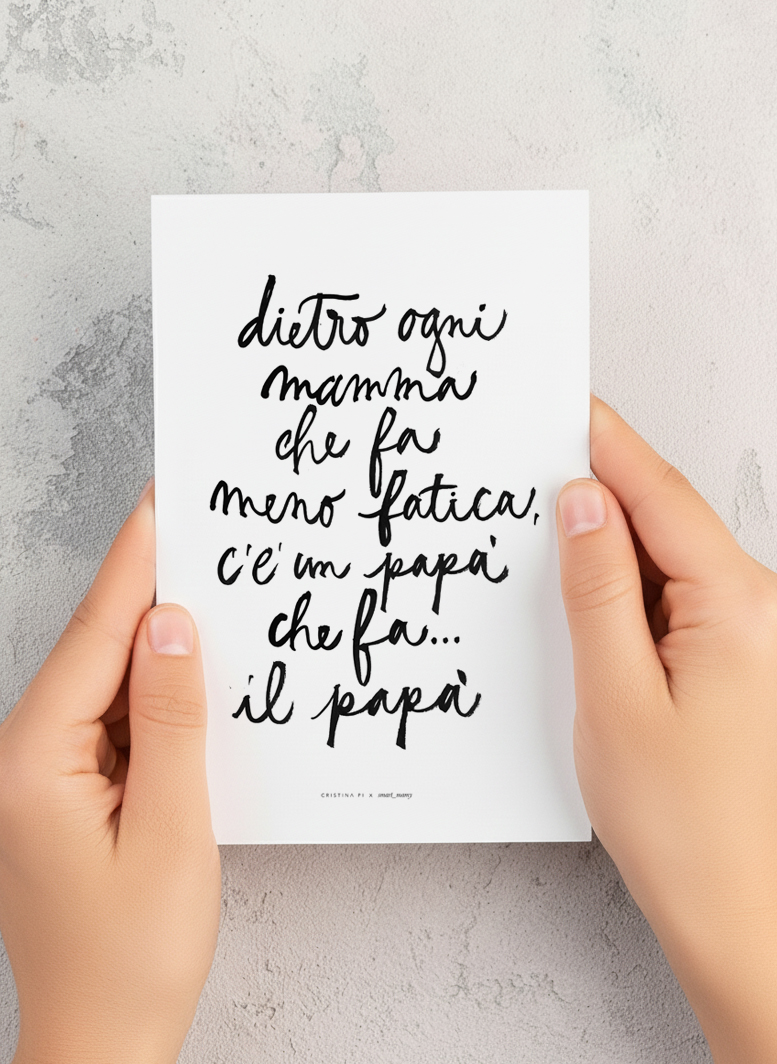 dietro ogni
mamma
che fa
meno fatica,
c'è un papà
che fa...
il papà
CRISTINA PI X smart_mamy